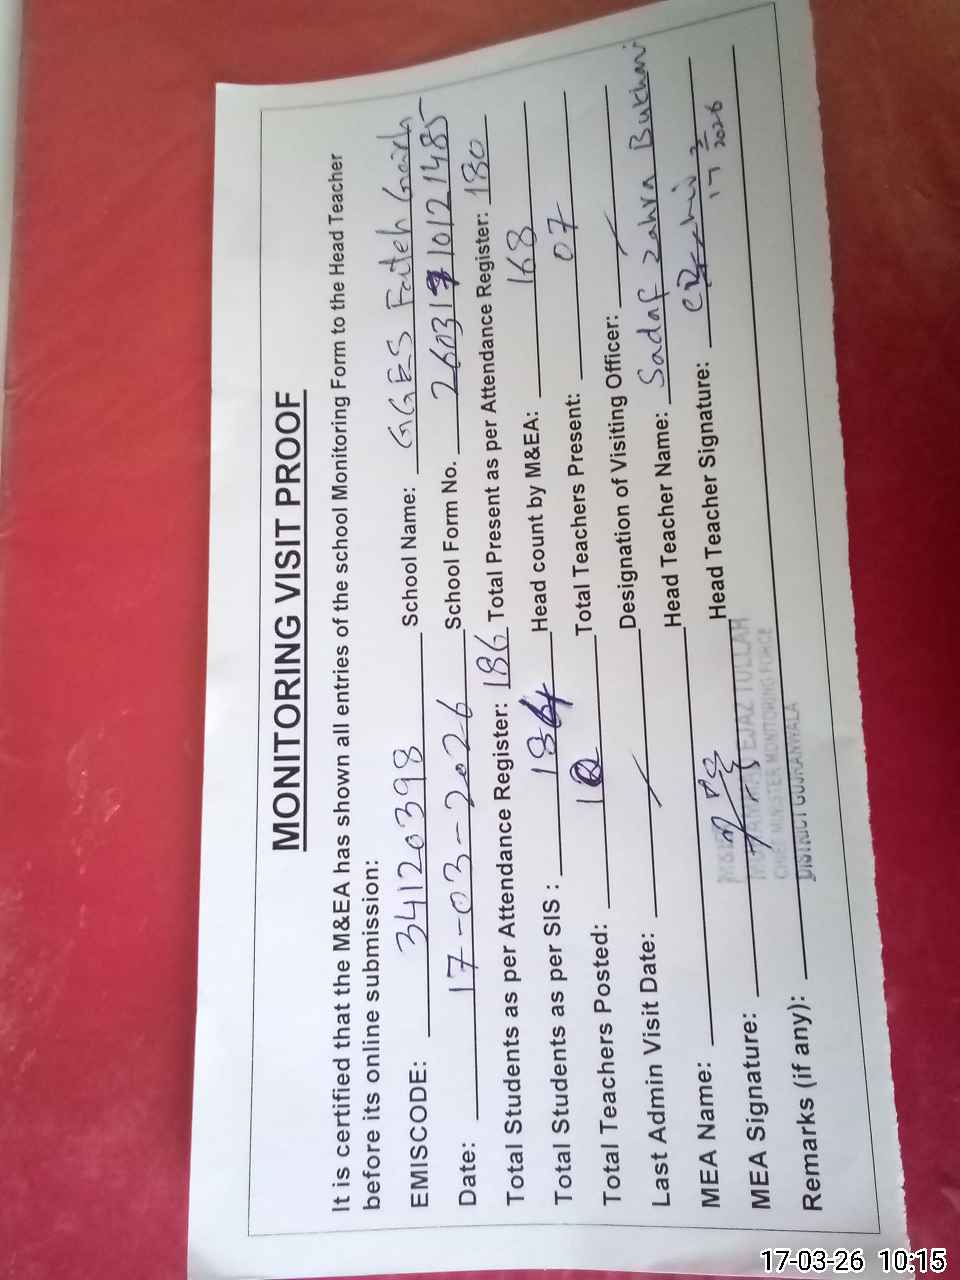 MONITORING VISIT PROOF
It is certified that the M&EA has shown all entries of the school Monitoring Form to the Head Teacher
before its online submission:
EMISCODE: 34120398 School Name: GGES Fateh Garh
Date: 17-03-2026 School Form No. 260317 10121485
Total Students as per Attendance Register: 186 Total Present as per Attendance Register: 180
Total Students as per SIS : 184 Head count by M&EA: 168
Total Teachers Posted: 10 Total Teachers Present: 07
Last Admin Visit Date: Designation of Visiting Officer:
MEA Name: Head Teacher Name: Sadaf Zahra Bukhari
MEA Signature: Head Teacher Signature: 17 3 2026
EJAZ TULLAH
CHIEF MINISTER MONITORING FORCE
DISTRICT GUJRANWALA
Remarks (if any):
17-03-26 10:15